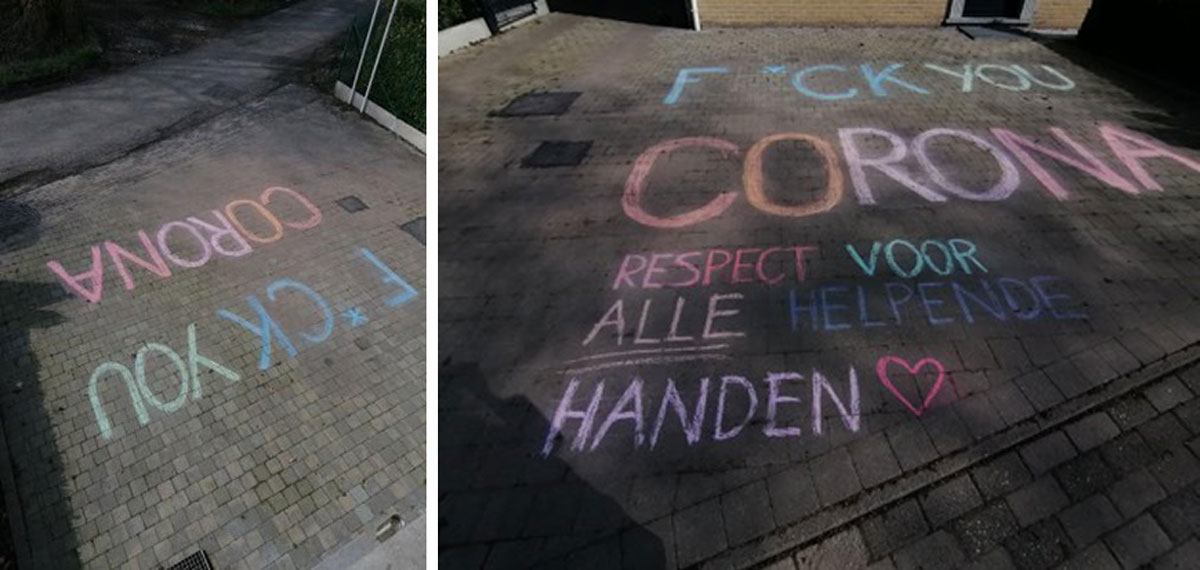 F*CK YOU
CORONA
F*CK YOU
CORONA
RESPECT VOOR
ALLE HELPENDE
HANDEN